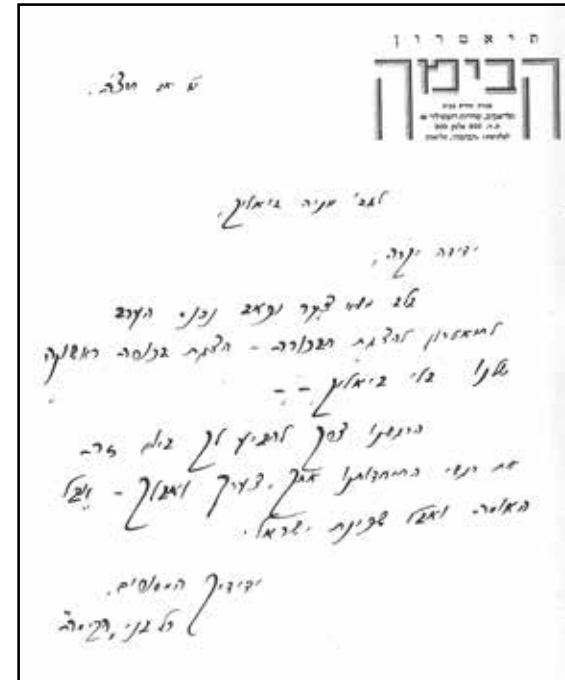 תיאטרון
הבימה
לגב' מניה ביאליק,
ידידה יקרה,
בלב מלא צער וכאב נכנס הערב
לתיאטרון להצגת הבכורה – הצגת בכורה ראשונה
שלנו בלי ביאליק – –
הרגשנו צורך להביע לך ביום זה
את רגשי התיחדותנו אתך, צערך ואבלך – אבל
האומה ואבל שכינת ישראל.
ידידיך
כל בני "הבימה"